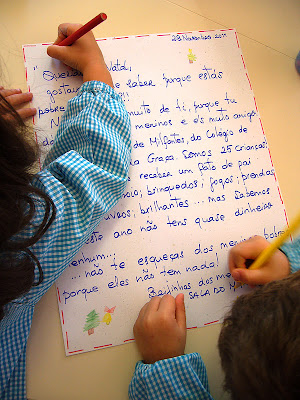 23 Novembro, 2011
" Querid Natal,
gostar saber porque estás
pobre !!!
N muito de ti, porque tu
meninos e és muito amigo
de Milfontes, do Colégio de
da Graça. Somos 25 crianças
receber um fato de pai
brinquedos; fogos; prendas
brilhantes ... mas sabemos
este ano não tens quase dinheiro
nenhum...;
... não te esqueças dos meninos pobre
porque eles não tem nada!
Beijinhos dos me
SALA DO